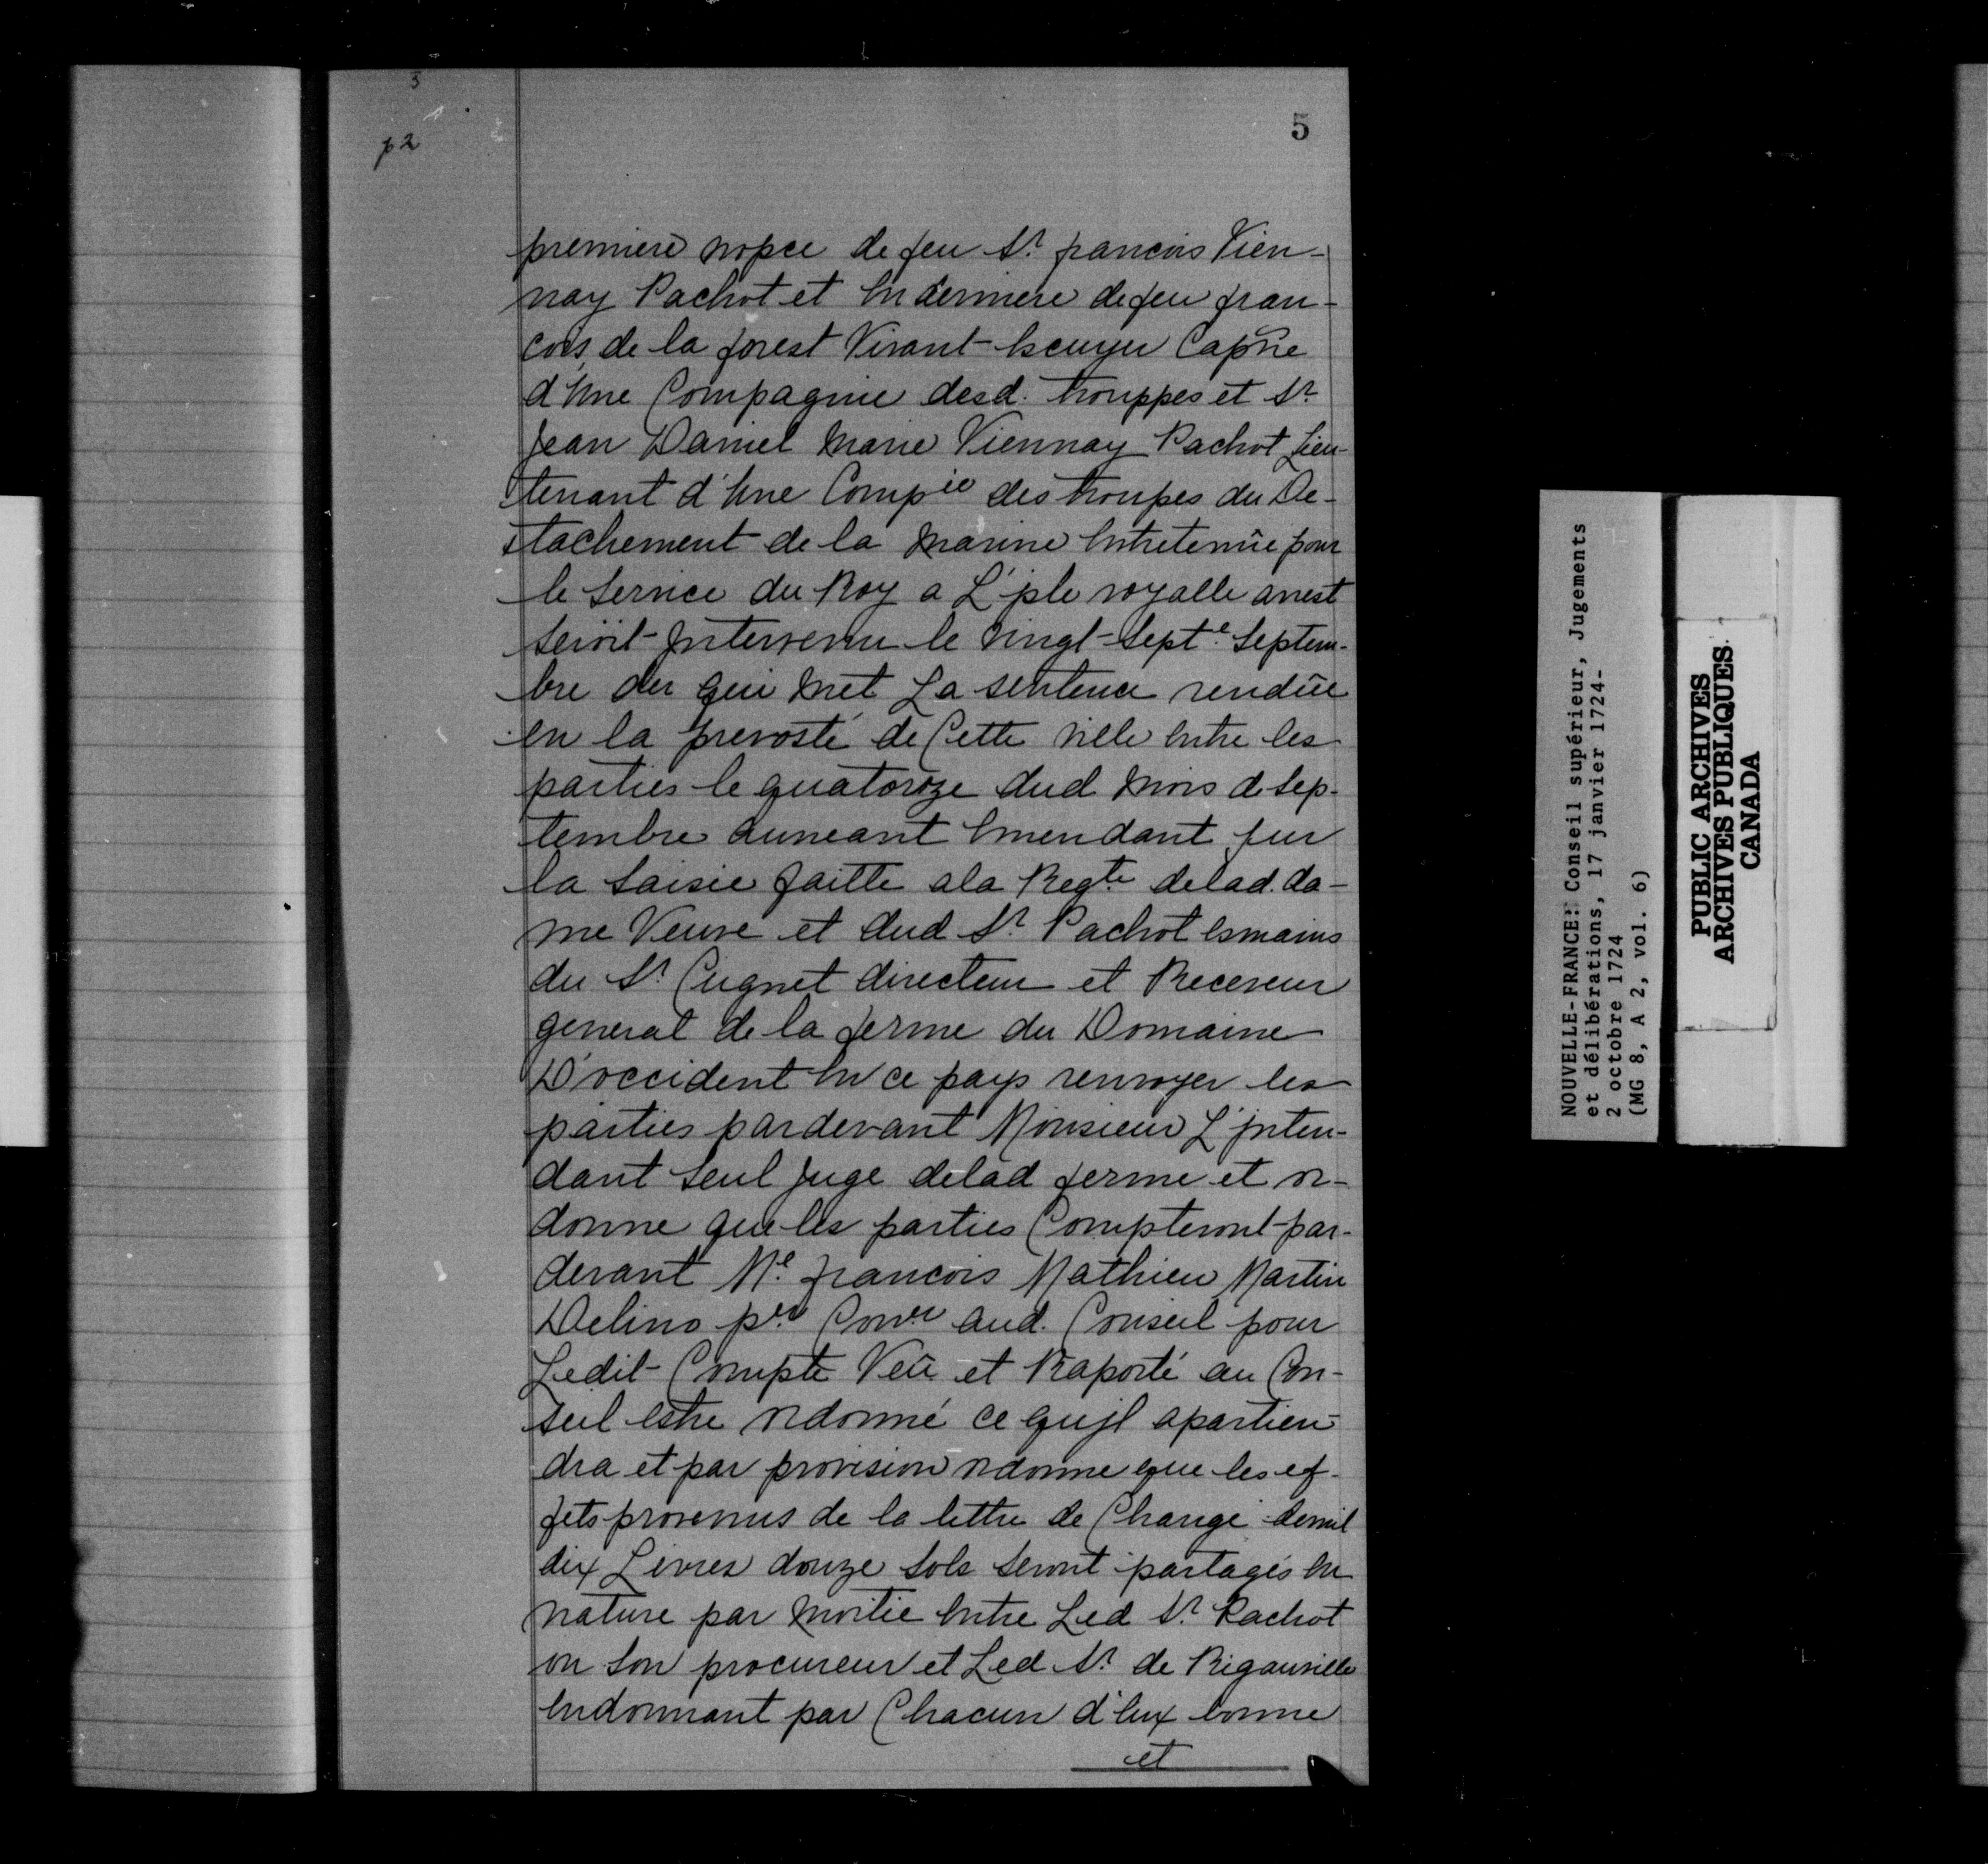 3
p 2
5
premiere nopce de feu Sr. francois Vien-
nay Pachot et En derniere de feu fran-
cois de la forest Vivant Escuyer Capne
d'Une Compagnie desd. trouppes et Sr.
Jean Daniel Marie Viennay Pachot Lieu-
tenant d'Une Compie des troupes du De-
tachement de la Marine Entretenüe pour
le Service du Roy a L'jsle royalle arrest
seroit jntervenu le vingt-septe. Septem-
bre der qui met La sentence rendüe
en la prevosté de Cette ville Entre les
parties le quatorze dud Mois de Sep-
tembre auneant Emendant sur
la Saisie faitte ala Reqte delad. da-
me Veuve et dud Sr. Pachot Esmains
du Sr. Cugnet directeur et Receveur
general de la ferme du Domaine
D'occident En ce pays renvoyer les
parties pardevant Monsieur L'jnten-
dant Seul Juge delad ferme et or-
donne que les parties Compteront par-
devant Me. francois Mathieu Martin
Delino per Conler aud. Conseil pour
Ledit Compte Veü et Raporté au Con-
seil estre ordonné ce qu'jl apartien-
dra et par provision ordonne que les ef-
fets provenus de la lettre de Change demil
dix Livres douze sols seront partagés En
nature par Moitié Entre Led Sr. Pachot
ou Son procureur et Led Sr. de Rigauville
Endonnant par Chacun d'Eux bonne
et
NOUVELLE-FRANCE: Conseil supérieur, Jugements
et délibérations, 17 janvier 1724-
2 octobre 1724
(MG 8, A 2, vol. 6)
PUBLIC ARCHIVES
ARCHIVES PUBLIQUES
CANADA